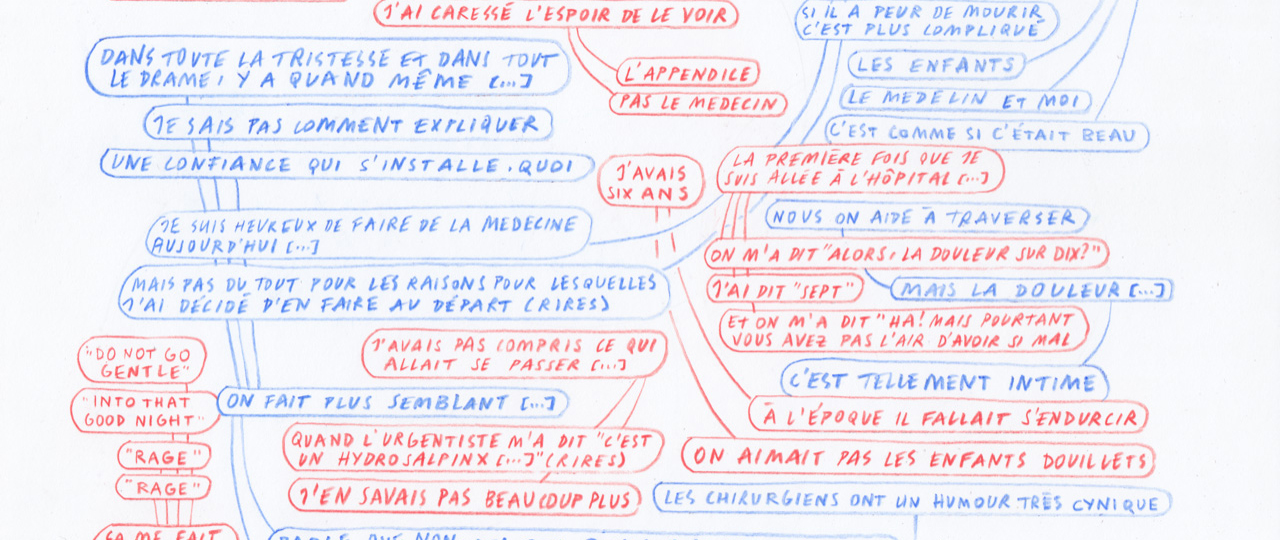 J'AI CARESSÉ L'ESPOIR DE LE VOIR
SI IL A PEUR DE MOURIR
C'EST PLUS COMPLIQUÉ
DANS TOUTE LA TRISTESSE ET DANS TOUT
LE DRAME, Y A QUAND MÊME [...]
L'APPENDICE
PAS LE MEDECIN
LES ENFANTS
LE MEDECIN ET MOI
JE SAIS PAS COMMENT EXPLIQUER
C'EST COMME SI C'ÉTAIT BEAU
UNE CONFIANCE QUI S'INSTALLE, QUOI
J'AVAIS
SIX ANS
LA PREMIÈRE FOIS QUE JE
SUIS ALLÉE À L'HÔPITAL [...]
JE SUIS HEUREUX DE FAIRE DE LA MEDECINE
AUJOURD'HUI [...]
NOUS ON AIDE À TRAVERSER
ON M'A DIT "ALORS, LA DOULEUR SUR DIX?"
MAIS PAS DU TOUT POUR LES RAISONS POUR LESQUELLES
J'AI DÉCIDÉ D'EN FAIRE AU DÉPART (RIRES)
J'AI DIT "SEPT"
MAIS LA DOULEUR [...]
ET ON M'A DIT "HA! MAIS POURTANT
VOUS AVEZ PAS L'AIR D'AVOIR SI MAL
"DO NOT GO
GENTLE"
J'AVAIS PAS COMPRIS CE QUI
ALLAIT SE PASSER [...]
C'EST TELLEMENT INTIME
"INTO THAT
GOOD NIGHT"
ON FAIT PLUS SEMBLANT [...]
À L'ÉPOQUE IL FALLAIT S'ENDURCIR
QUAND L'URGENTISTE M'A DIT "C'EST
UN HYDROSALPINX [...]" (RIRES)
"RAGE"
ON AIMAIT PAS LES ENFANTS DOUILLETS
"RAGE"
J'EN SAVAIS PAS BEAUCOUP PLUS
LES CHIRURGIENS ONT UN HUMOUR TRÈS CYNIQUE
ÇA ME FAIT
PARCE QUE NON